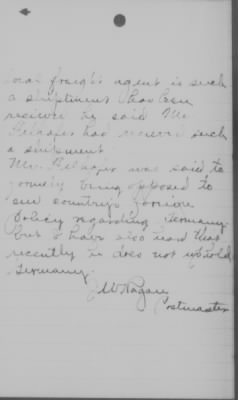 local freight agent is such
a shiptment has been
received he said Mr
had received such
a shipment
Mr. was said to
formerly being opposed to
our country's
policy regarding Germany.
but I have also heard that
recently he does not uphold
Germany.
Postmaster